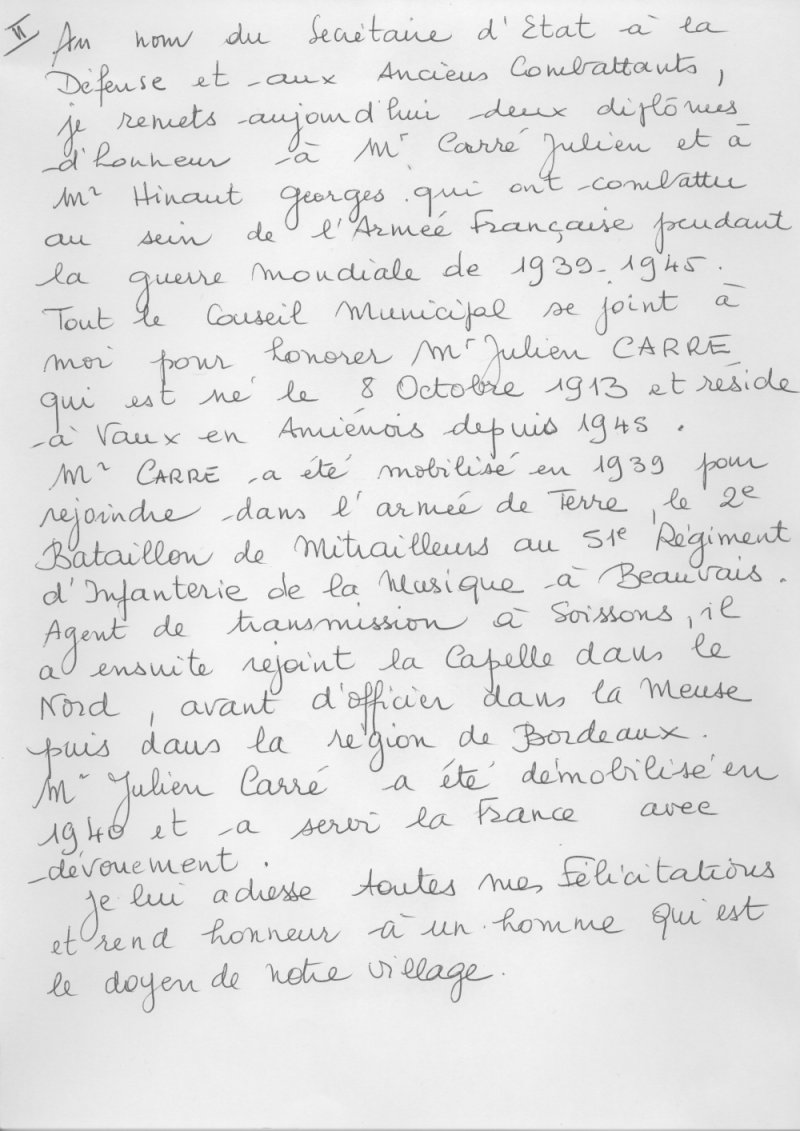 II Au nom du Secrétaire d'Etat à la
Défense et aux Anciens Combattants,
je remets aujourd'hui deux diplômes
d'honneur à Mr Carré Julien et à
Mr Hinaut Georges qui ont combattu
au sein de l'Armée Française pendant
la guerre mondiale de 1939-1945.
Tout le Conseil Municipal se joint à
moi pour honorer Mr Julien CARRE
qui est né le 8 Octobre 1913 et réside
à Vaux en Amiénois depuis 1945.
Mr CARRE a été mobilisé en 1939 pour
rejoindre dans l'armée de Terre, le 2e
Bataillon de Mitrailleurs au 51e Régiment
d'Infanterie de la Musique à Beauvais.
Agent de transmission à Soissons, il
a ensuite rejoint la Capelle dans le
Nord, avant d'officier dans la Meuse
puis dans la région de Bordeaux.
Mr Julien Carré a été démobilisé en
1940 et a servi la France avec
dévouement.
Je lui adresse toutes mes Félicitations
et rend honneur à un homme qui est
le doyen de notre village.